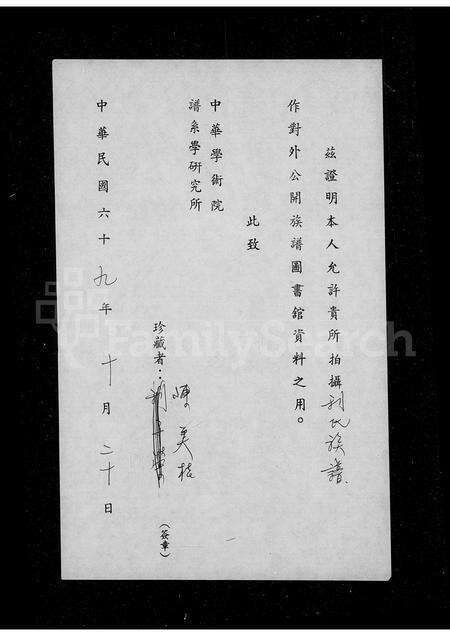 茲證明本人允許貴所拍攝刘氏族譜
作對外公開族譜圖書舘資料之用。
此致
中華學術院
譜系學研究所
珍藏者：陳美桂
（簽章）
中華民國六十九年十月二十日
FamilySearch